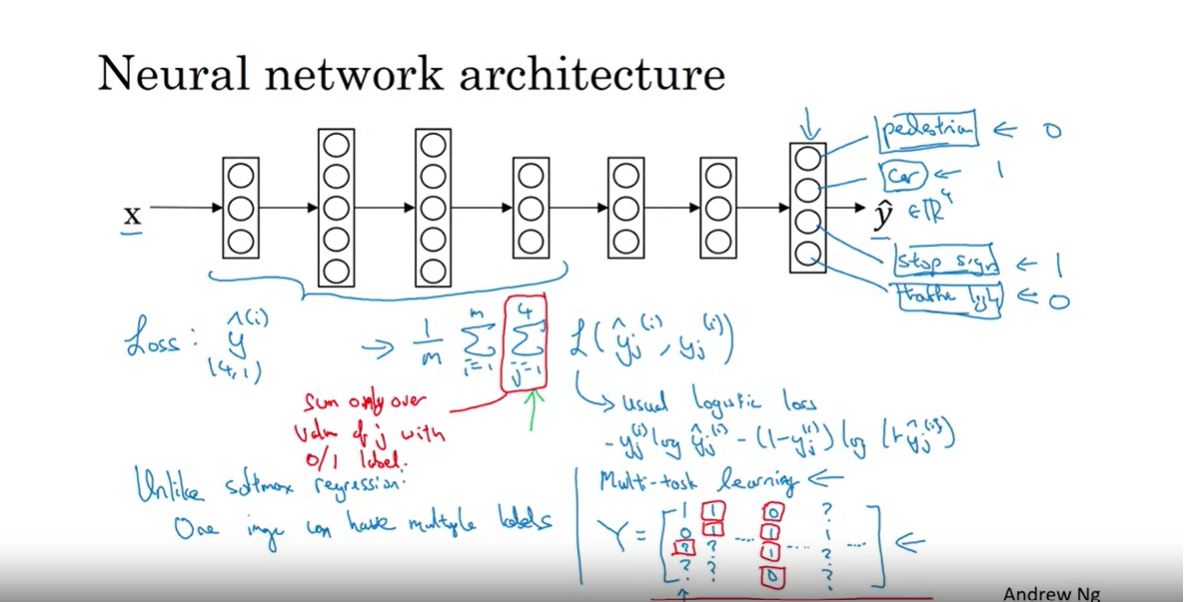 Neural network architecture
pedestrian ← 0
car ← 1
x
ŷ ∈ ℝ⁴
stop sign ← 1
traffic light ← 0
Loss: ŷ^(i) → 1/m Σ_{i=1}^{m} Σ_{j=1}^{4} L(ŷ_j^(i), y_j^(i))
(4,1)
sum only over
value of j with
0/1 label.
usual logistic loss
- y_j^(i) log ŷ_j^(i) - (1-y_j^(i)) log (1-ŷ_j^(i))
Unlike softmax regression:
One image can have multiple labels
Multi-task learning ←
Y = [
1 1 0 ?
0 1 .... 1 1
? ? 1 .... ? ....
? ? 0 ?
] ←
Andrew Ng